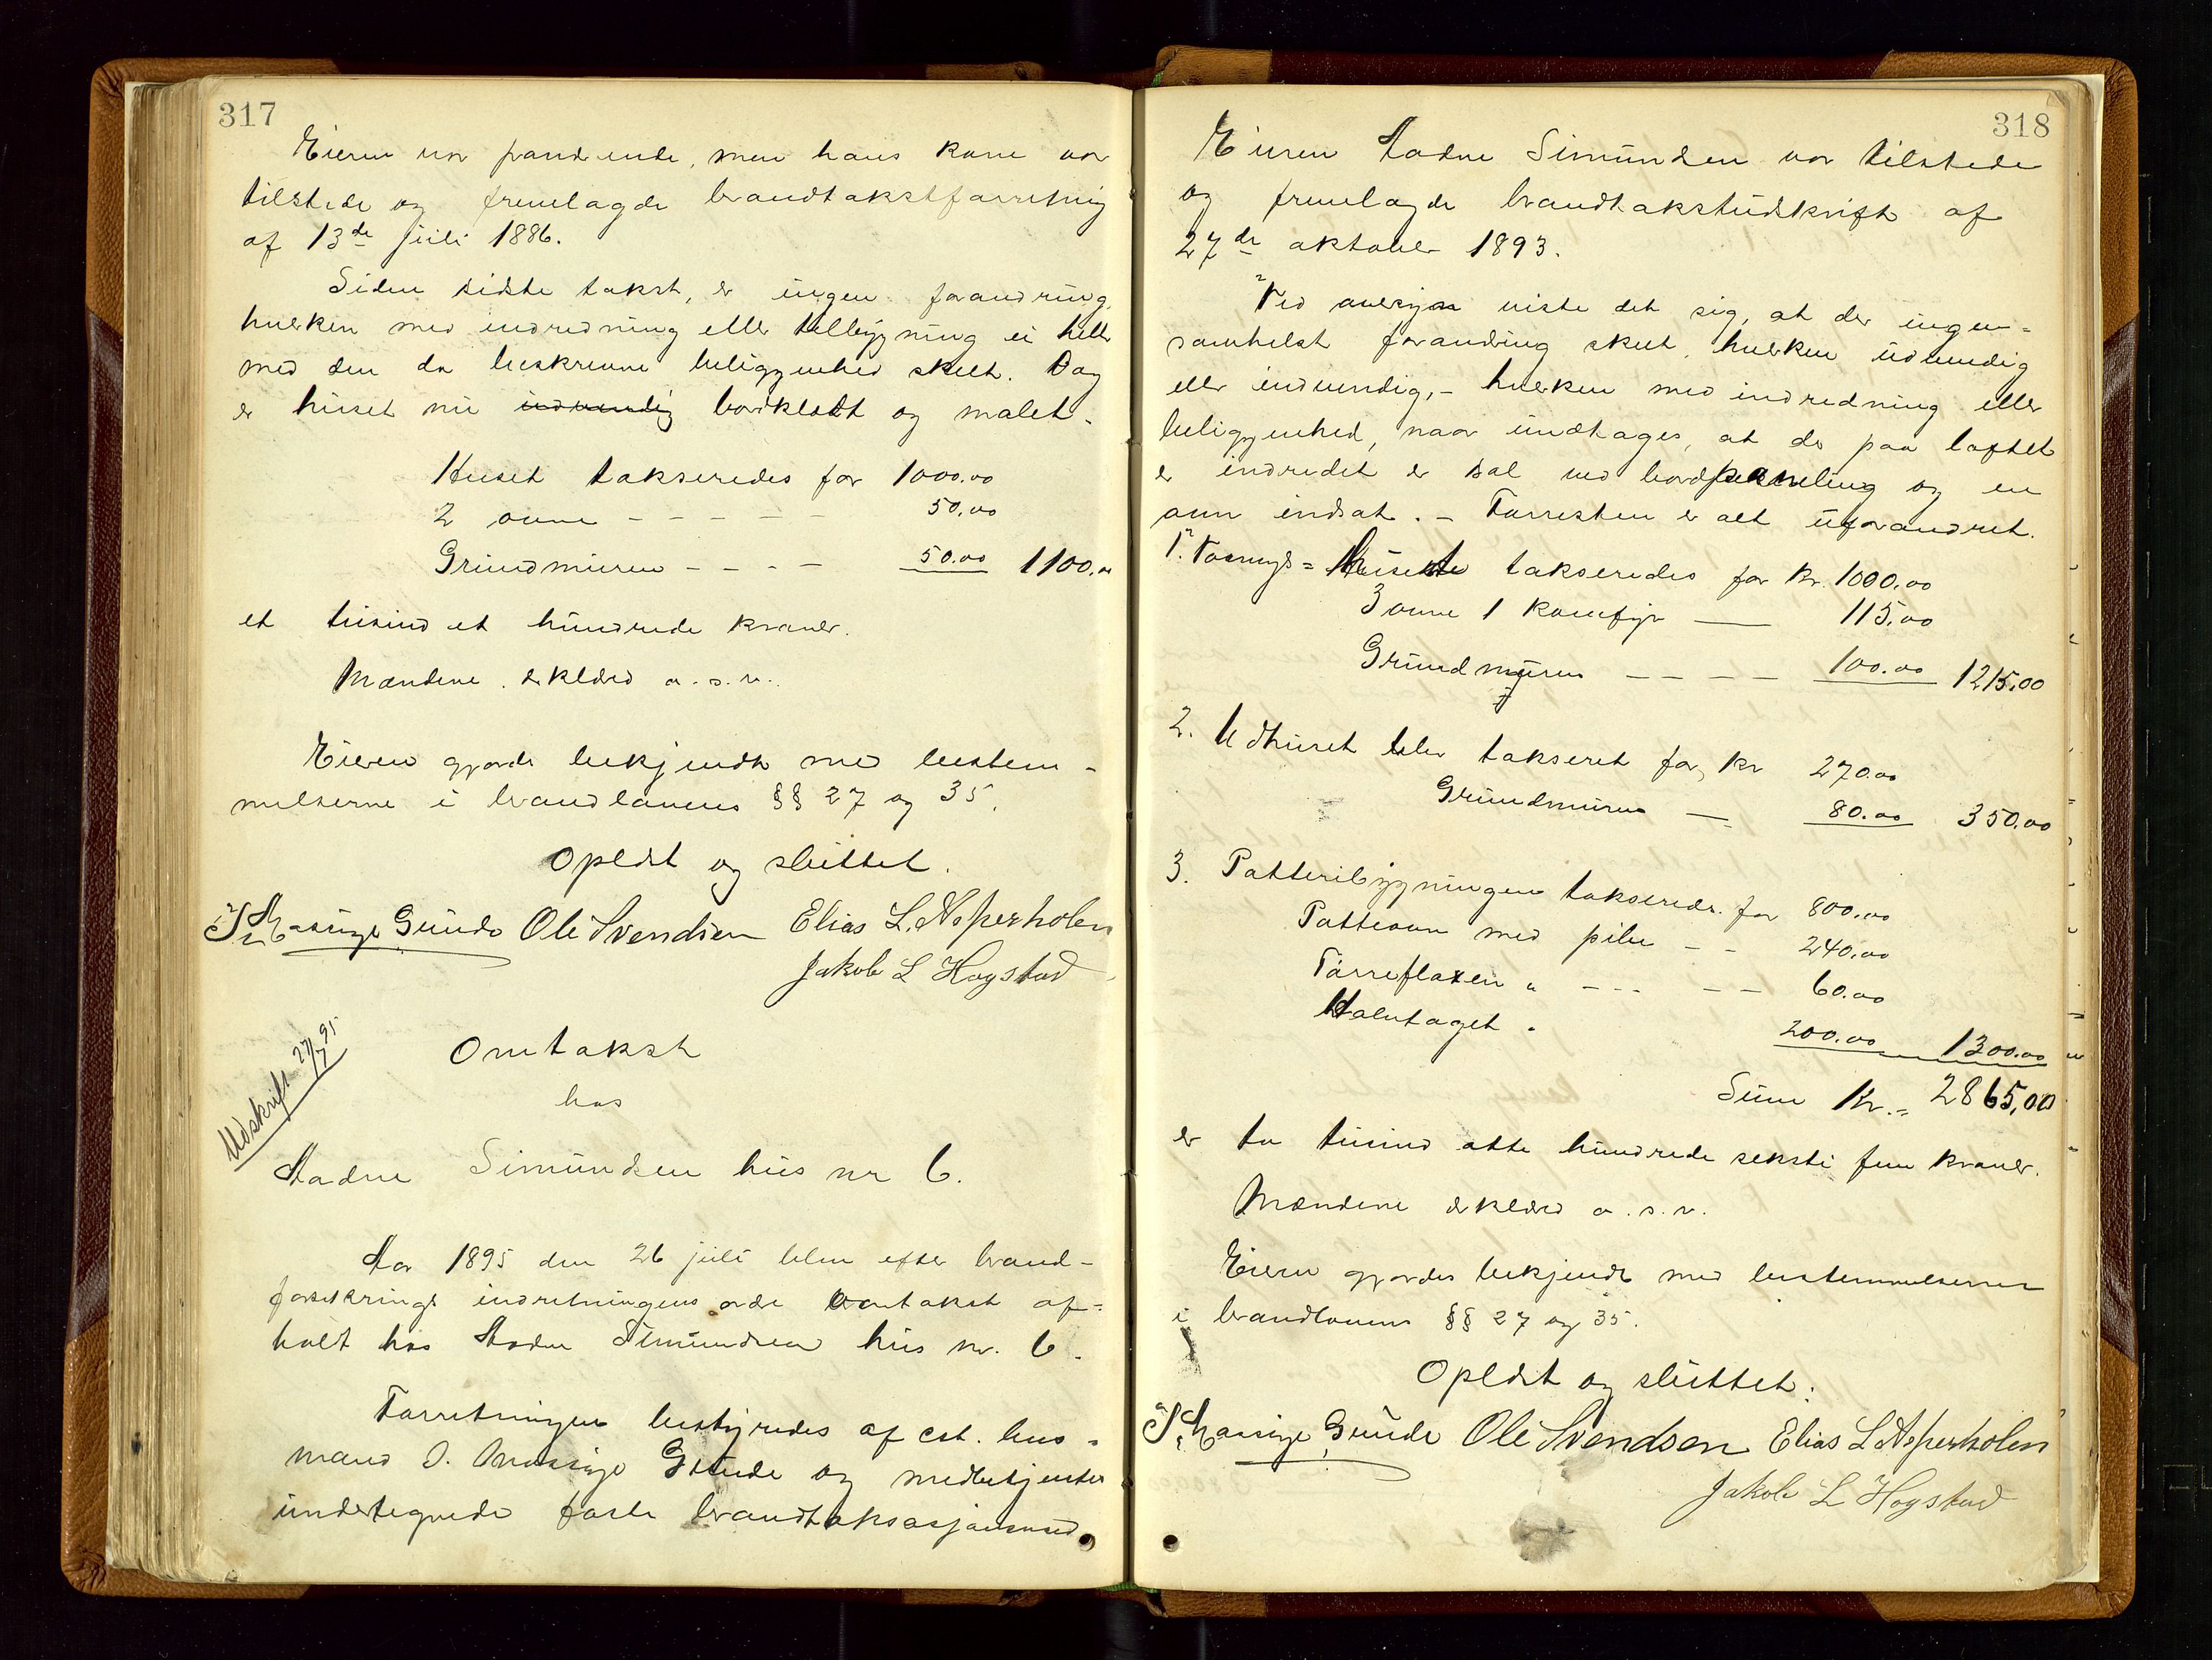 317
Eieren var fraværende, men hans kone var
tilstede og fremlagde brandtakstforretning
af 13de juli 1886.
Siden sidste takst, er ingen forandring,
hverken med indredning eller tilbygning ei heller
med den da beskrevne beliggenhed skeet. Dog
er huset nu indvendig bordklædt og malet.
Huset takseredes for 1000.00
2 ovne - - - - - 50.00
Grundmuren - - - - 50.00 1100.00
et tusind et hundrede kroner.
Mændene erklærd o.s.v..
Eieren gjordes bekjendt med bestem-
melserne i brandlovens §§ 27 og 35.
Oplæst og sluttet.
Massinge Gunde Ole Svendsen Elias L. Asperholen
Jakob L Hogstad
Udskrift 27/7 95
Omtakst
hos
Aadne Simundsen hus nr 6.
Aar 1895 den 26 juli blev efter brand-
forsikrings indretningens ordre omtakst af-
holdt hos Aadne Simundsen hus nr. 6.
Forretningen bestyredes af cst. lens-
mand J. Massinge Gunde og medbetjentes
undertegnede faste brandtaksasjonsmænd.
318
Eieren Aadne Simundsen var tilstede
og fremlagde brandtakstudskrift af
27de oktober 1893.
Ved avesyn viste det sig, at der ingen-
somhelst forandring skeet, hverken udvendig
eller indvendig, - hverken med indredning eller
beliggenhed, naar undtages, at der paa loftet
er indredet er sal med bordpaneling og en
ovn indsat. - Forresten er alt uforandret.
1. Vaanings- huset takseredes for kr. 1000.00
3 ovne 1 komfyr — 115.00
Grundmuren - - - - 100.00 1215.00
2. Udhuset blev takseret for kr 270.00
Grundmuren — 80.00 350.00
3. Potteribygningen takseredes for 800.00
Potteovn med pibe - - 240.00
Tørreflaxen " - - - - - 60.00
Halvtaget " 200.00 1300.00
Sum Kr. = 2865,00
er to tusind otte hundrede seksti fem kroner.
Mændene erklærd o.s.v.
Eieren gjordes bekjendt med bestemmelserne
i brandlovens §§ 27 og 35.
Oplæst og sluttet.
Massinge Gunde Ole Svendsen Elias L Asperholen
Jakob L Hogstad